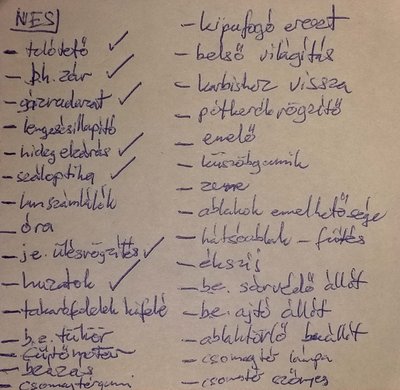 NES
- tolótető ✓
- kh. zár ✓
- gázrudazat ✓
- lengéscsillapító
- hideg elzárás ✓
- száloptika ✓
- km számlálók
- óra
- je. ülésrögzítés ✓
- huzatok ✓
- takarófedelek kifelé
- b.e. tükör
- fűtőmotor
- beázás
- csomagtérgumi
- kipufogó ereszt
- belső világítás
- karbishoz vissza
- pótkerékrögzítő
- emelő
- küszöbgumik
- zene
- ablakok emelhetősége
- hátsóablak - fűtés
- ékszíj
- be. sárvédő állít
- be. ajtó állít
- ablaktörlő beállít
- csomagtér lámpa